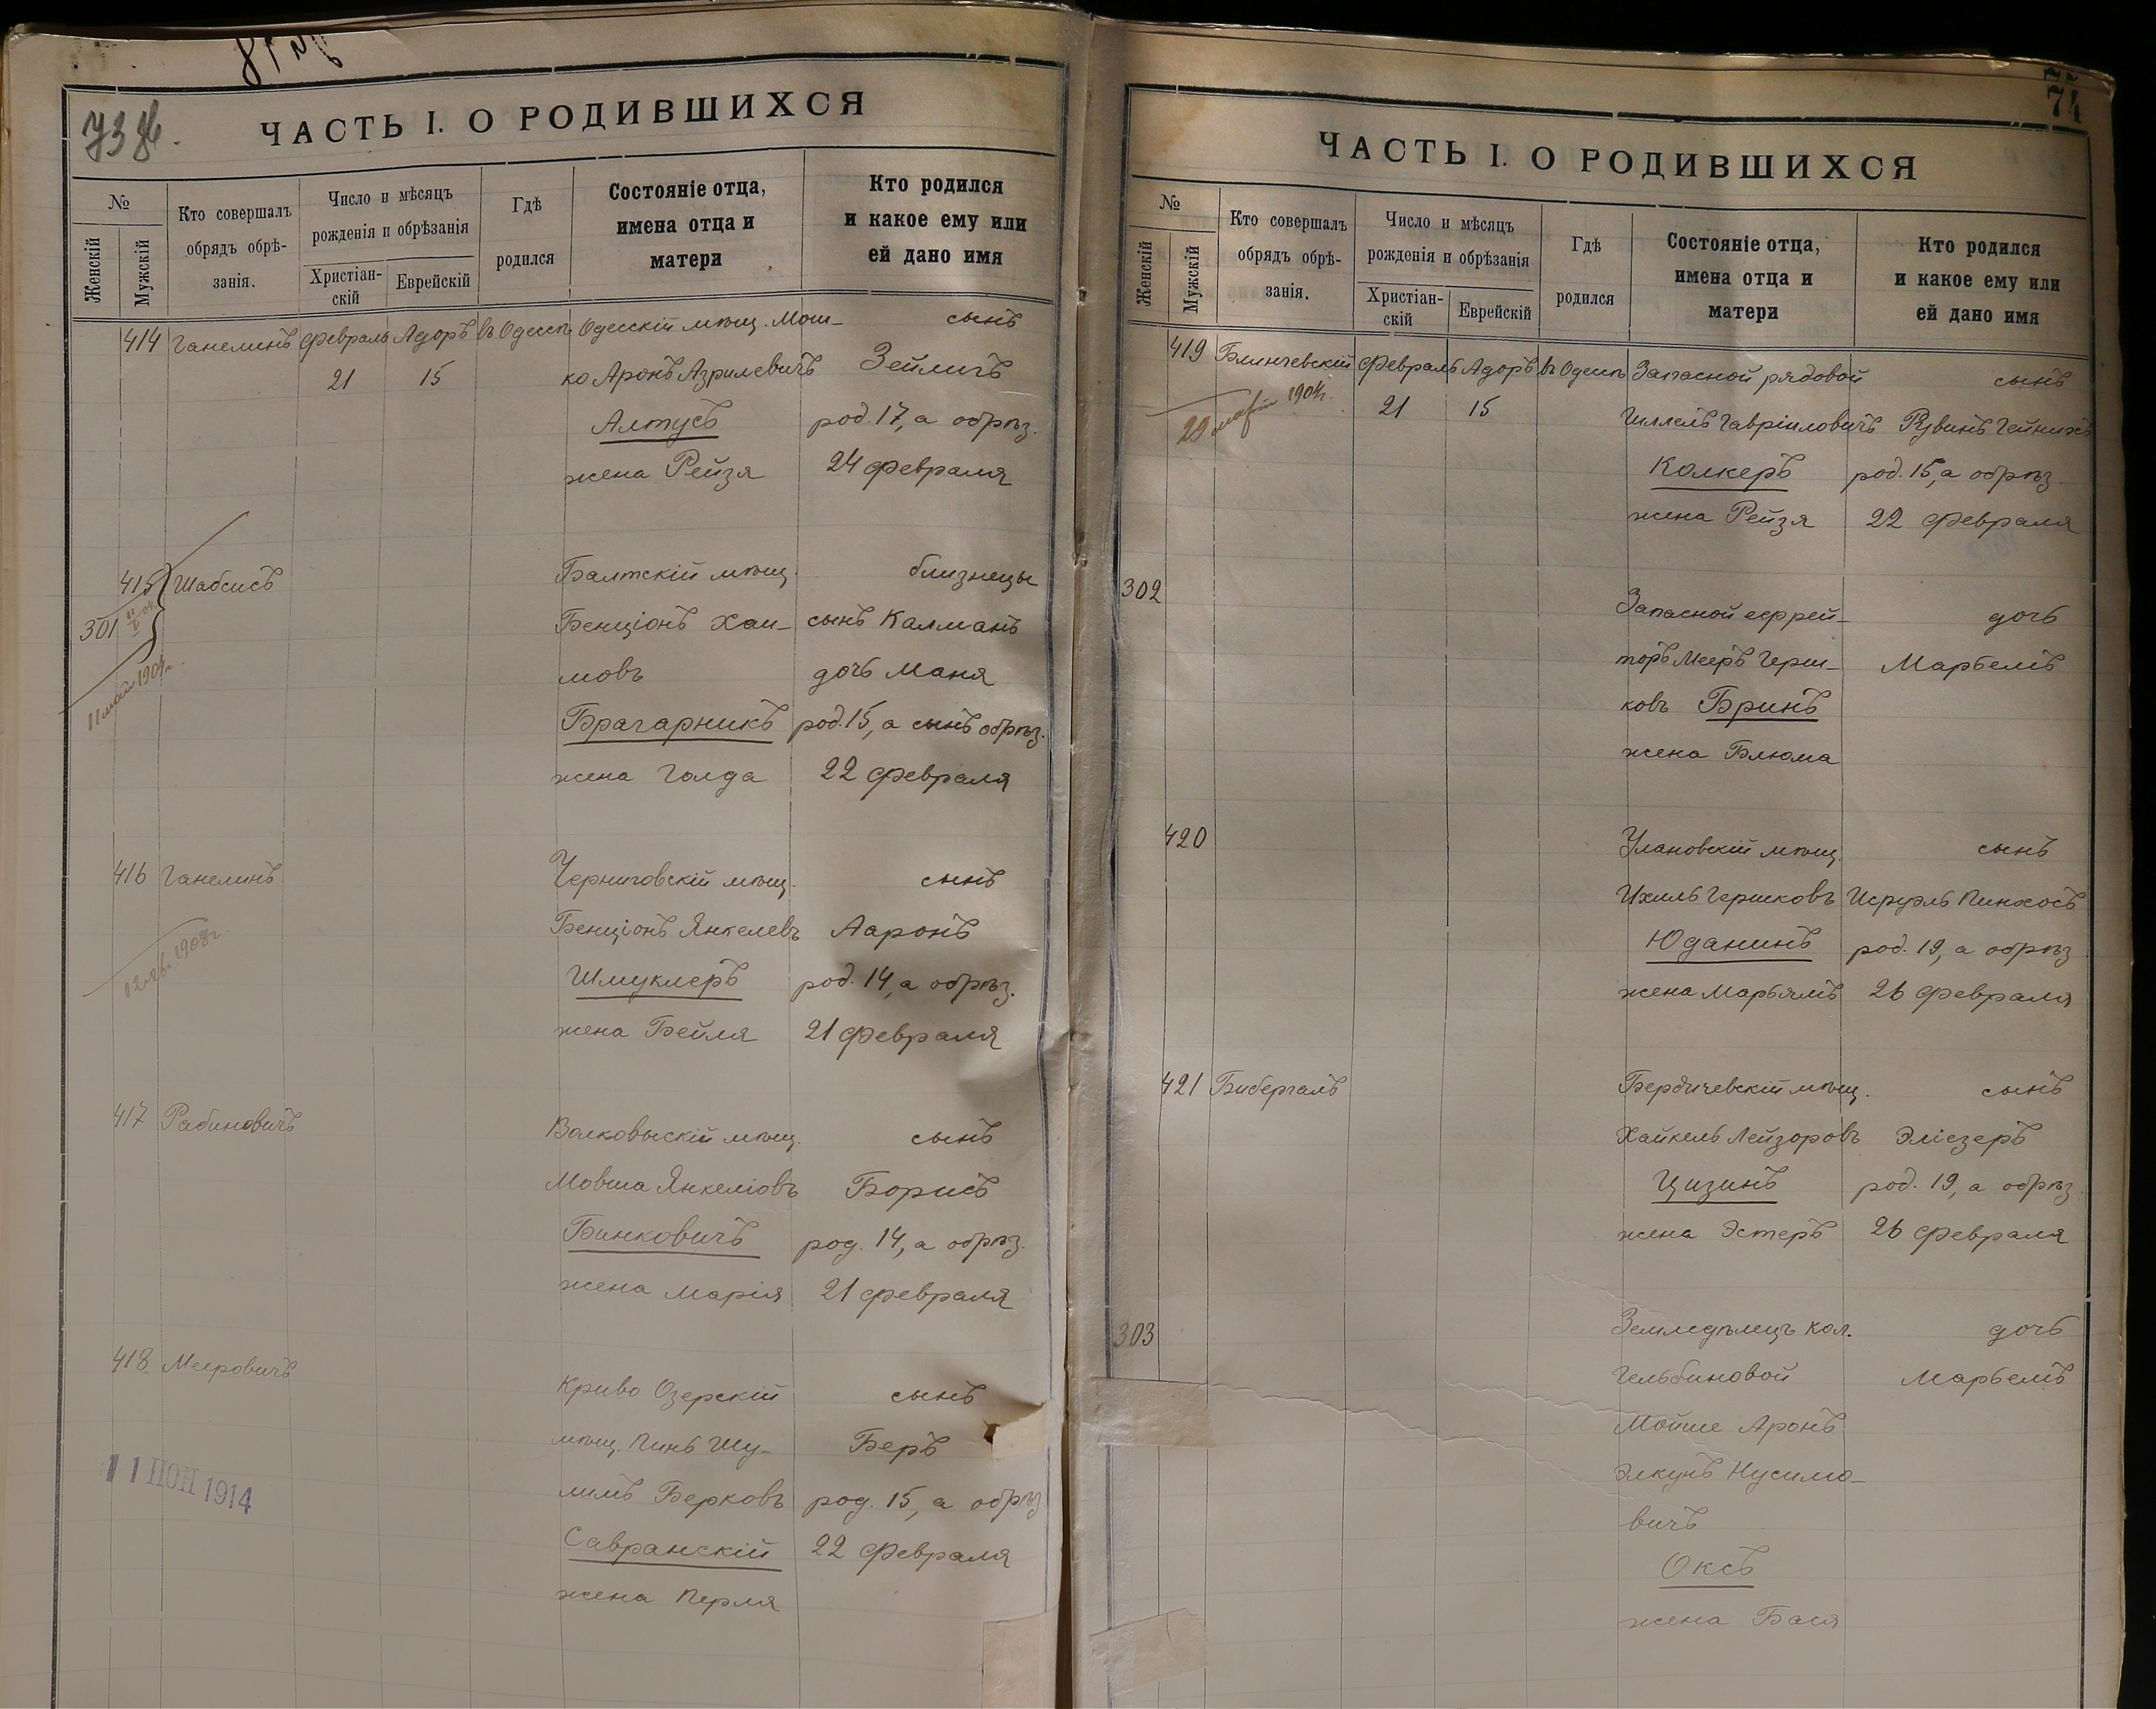 73 об.
ЧАСТЬ I. О РОДИВШИХСЯ
№
Женскій
Мужскій
Кто совершалъ обрядъ обрѣ-занія.
Число и мѣсяцъ рожденія и обрѣзанія
Христіан-скій
Еврейскій
Гдѣ родился
Состояніе отца, имена отца и матери
Кто родился и какое ему или ей дано имя
414 Ганелинъ Февраль Адоръ въ Одессѣ Одесскій мѣщ. Мош- сынъ
21 15 ко Аронъ Азрилевичъ Зейлигъ
Алтусъ род. 17, а обрѣз.
жена Рейзя 24 февраля
415 Шабсисъ Балтскій мѣщ. близнецы
301 Бенціонъ Хаи- сынъ Калманъ
мовъ дочь Маня
11 май 1904 г.
Брагарникъ род. 15, а сынъ обрѣз.
жена Голда 22 февраля
416 Ганелинъ Черниговскій мѣщ. сынъ
Бенціонъ Янкелевъ Ааронъ
1908 г.
Шмуклеръ род. 14, а обрѣз.
жена Бейля 21 февраля
417 Рабиновичъ Волковыскій мѣщ. сынъ
Мовша Янкеліовъ Борисъ
Бинковичъ род. 14, а обрѣз.
жена Марія 21 февраля
418 Мееровичъ Криво Озерскій сынъ
мѣщ. Пинь Шу- Беръ
1 ІЮН 1914
лимъ Берковъ род. 15, а обрѣз
Савранскій 22 февраля
жена Перля
74
ЧАСТЬ I. О РОДИВШИХСЯ
№
Женскій
Мужскій
Кто совершалъ обрядъ обрѣ-занія.
Число и мѣсяцъ рожденія и обрѣзанія
Христіан-скій
Еврейскій
Гдѣ родился
Состояніе отца, имена отца и матери
Кто родился и какое ему или ей дано имя
419 Блинчевскій Февраль Адоръ въ Одессѣ Запасной рядовой сынъ
29 1904 г. 21 15 Гиллель Гавріиловичъ Рувинъ Гейнихъ
Колкеръ род. 15, а обрѣз.
жена Рейзя 22 февраля
302 Запасной ефрей- дочь
торъ Мееръ Герш- Марьемъ
ковъ Бринъ
жена Блюма
420 Улановскій мѣщ. сынъ
Ихиль Гершковъ Исруэль Пинхосъ
Юданинъ род. 19, а обрѣз
жена Марьямъ 26 февраля
421 Бибергалъ Бердичевскій мѣщ. сынъ
Хайкель Лейзоровъ Эліезеръ
Цизинъ род. 19, а обрѣз.
жена Эстеръ 26 февраля
303 Земледѣлецъ кол. дочь
Гельбиновой Марьемъ
Мойше Аронъ
Элкунъ Нусимо-
вичъ
Оксъ
жена Бася